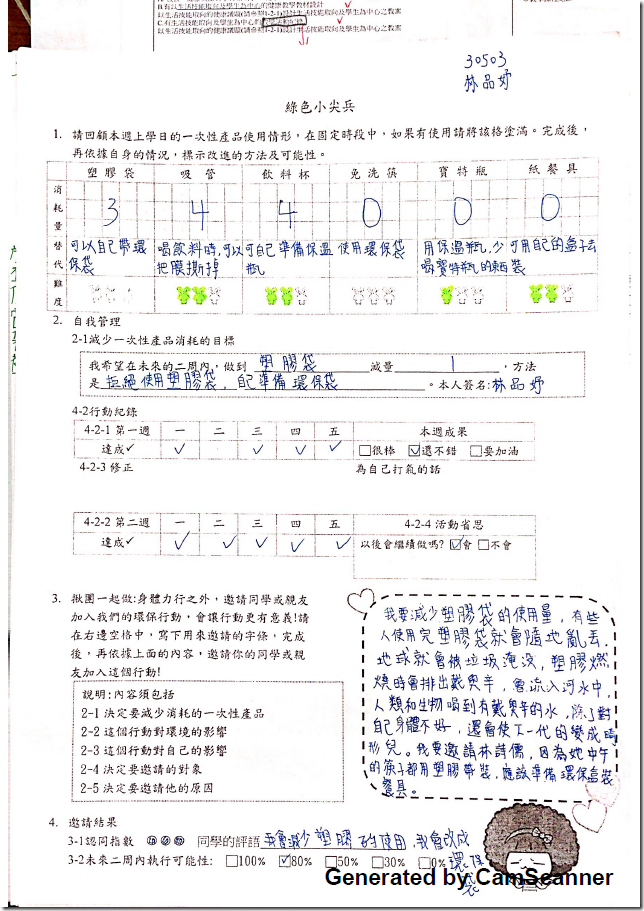 B.有以生活技能取向及學生為中心的健康教學教材設計
以生活技能取向的健康議題(請參照1-2-1)設計生活技能取向及學生為中心之教案
C.有生活技能取向及學生為中心的
以生活技能取向的健康議題(請參照1-2-1)設計生活技能取向及學生為中心之教案
30503
林品妤
綠色小尖兵
1. 請回顧本週上學日的一次性產品使用情形，在固定時段中，如果有使用請將該格塗滿。完成後，
再依據自身的情況，標示改進的方法及可能性。
塑膠袋 吸管 飲料杯 免洗筷 寶特瓶 紙餐具
消耗量 3 4 4 0 0 0
替代 可以自己帶環保袋 喝飲料時,可以把膜撕掉 可自己準備保溫瓶 使用環保袋 用保溫瓶,少喝寶特瓶的東西 可用自己的盒子去裝
難度
2. 自我管理
2-1減少一次性產品消耗的目標
我希望在未來的二周內，做到 塑膠袋 減量 1 ，方法
是 拒絕使用塑膠袋，自己準備環保袋 。本人簽名:林品妤
4-2行動紀錄
4-2-1 第一週 一 二 三 四 五 本週成果
達成✓ ✓ ✓ ✓ ✓ □很棒 ☑還不錯 □要加油
4-2-3 修正 為自己打氣的話
4-2-2 第二週 一 二 三 四 五 4-2-4 活動省思
達成✓ ✓ ✓ ✓ ✓ ✓ 以後會繼續做嗎? ☑會 □不會
3. 揪團一起做:身體力行之外，邀請同學或親友
加入我們的環保行動，會讓行動更有意義!請
在右邊空格中，寫下用來邀請的字條，完成
後，再依據上面的內容，邀請你的同學或親
友加入這個行動!
說明:內容須包括
2-1 決定要減少消耗的一次性產品
2-2 這個行動對環境的影響
2-3 這個行動對自己的影響
2-4 決定要邀請的對象
2-5 決定要邀請他的原因
我要減少塑膠袋的使用量，有些
人使用完塑膠袋就會隨地亂丟，
地球就會被垃圾淹沒，塑膠燃
燒時會排出戴奧辛，會流入河水中，
人類和生物喝到有戴奧辛的水，除了對
自己身體不好，還會使下一代的變成畸
形兒。我要邀請林詩儒，因為她中午
的筷子都用塑膠帶裝，應該準備環保盒裝
餐具。
4. 邀請結果
3-1認同指數 同學的評語 我會減少塑膠 使用,我會改成
環保袋
3-2未來二周內執行可能性: □100% ☑80% □50% □30% □0%
Generated by CamScanner